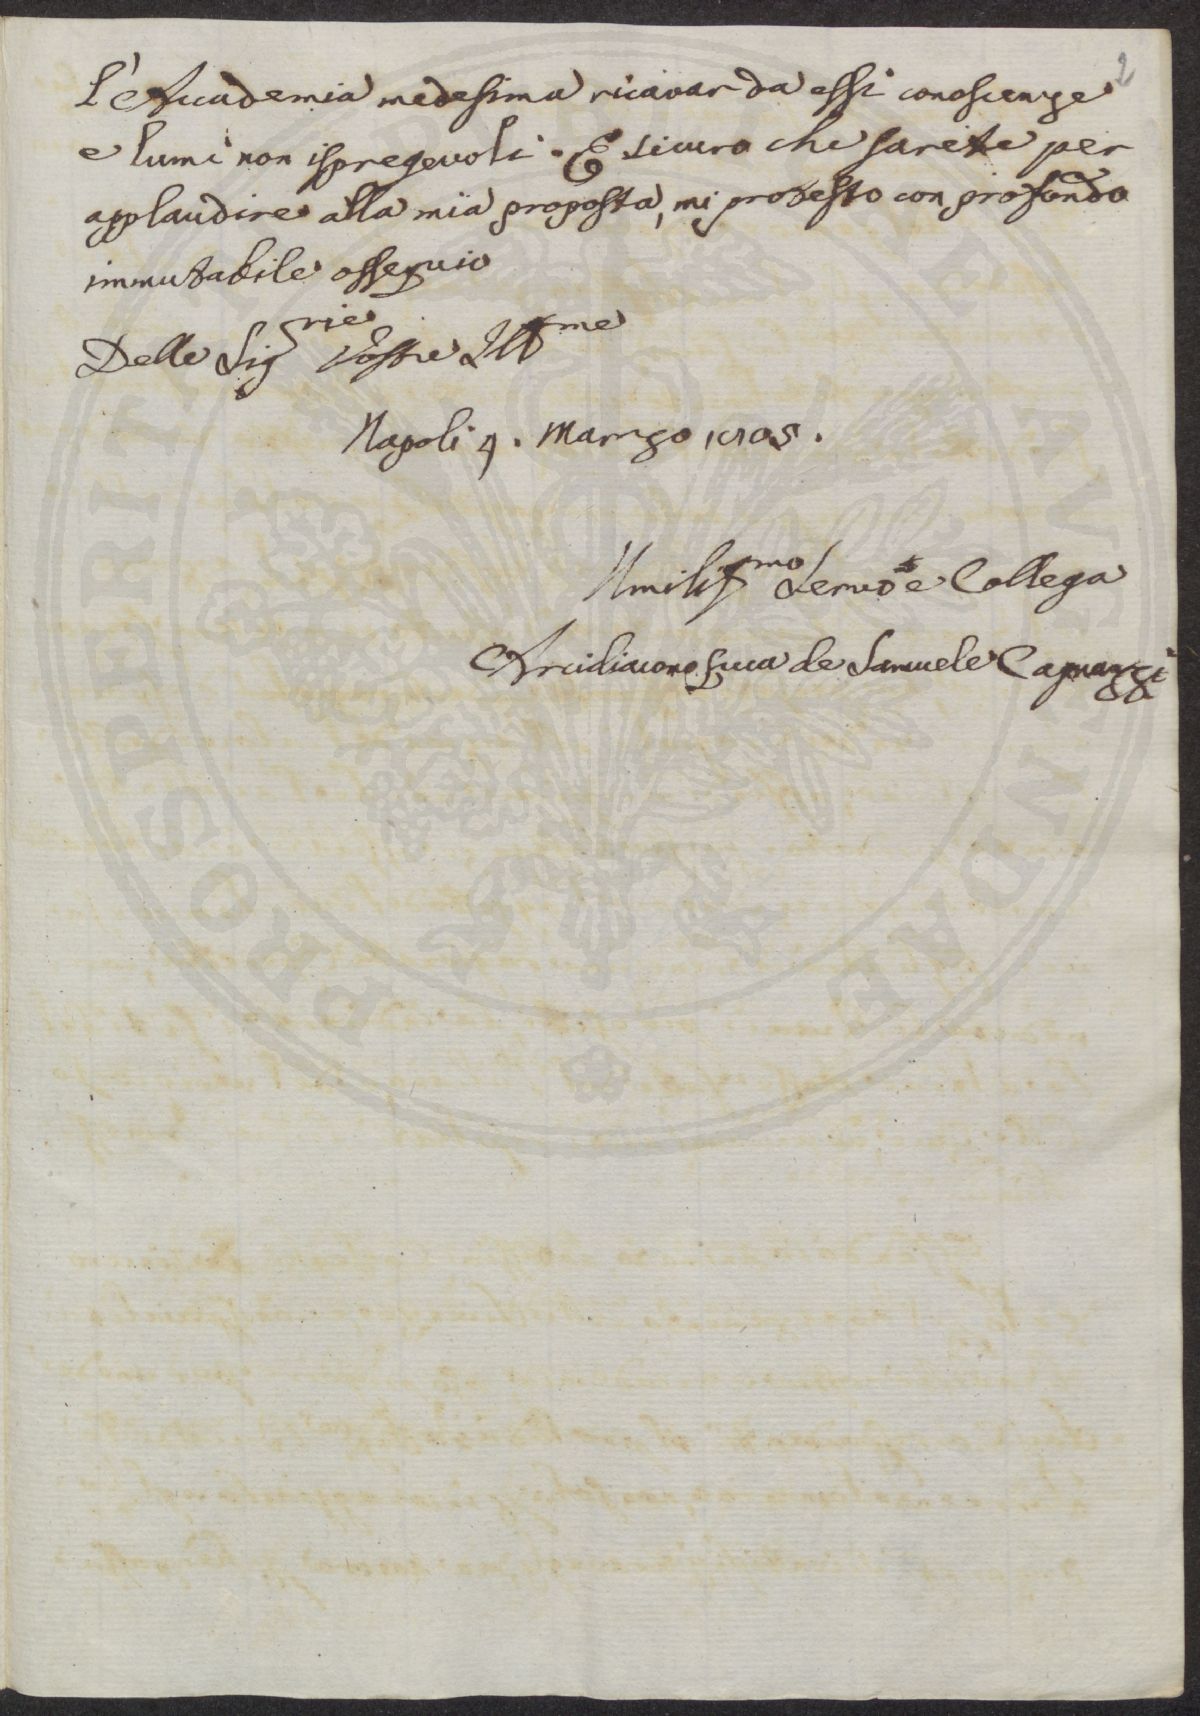 2
L'Accademia medesima ricavar da essi conoscenze
e lumi non ispregevoli. E sicuro che sarete per
applaudire alla mia proposta, mi protesto con profondo
immutabile ossequio
Delle Sig.rie Vostre Ill.me
Napoli 4. Marzo 1805.
Umiliss.mo Servo e Collega
Arcidiacono Luca de Samuele Cagnazzi
PROSPERITATI AVGENDAE